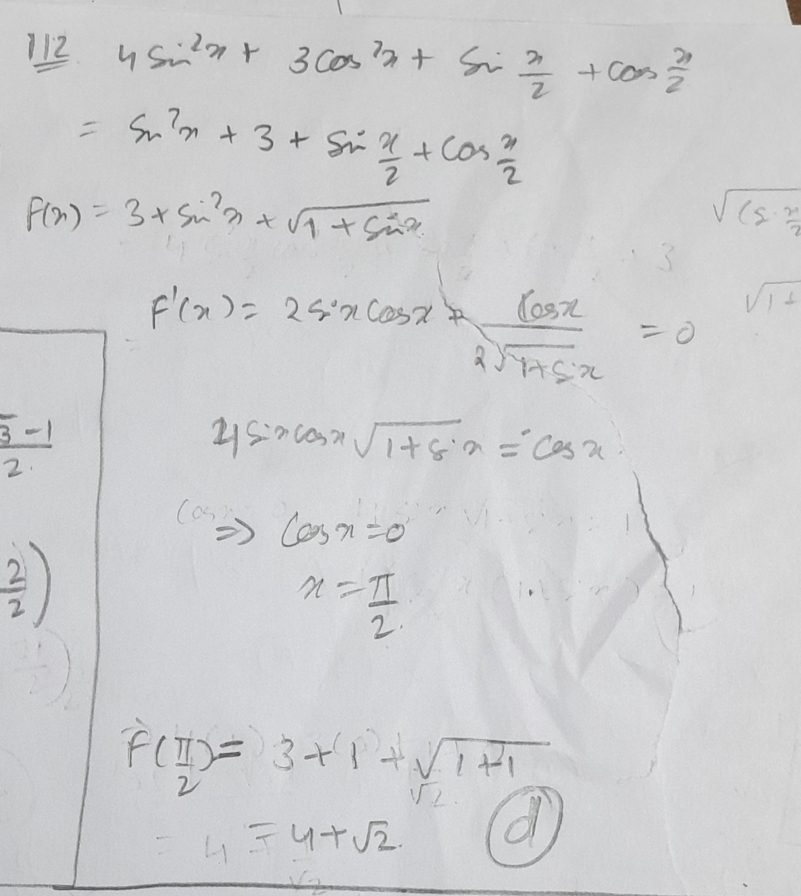 112 4 sin²x + 3 cos²x + sin x/2 + cos x/2
= sin²x + 3 + sin x/2 + cos x/2
f(x) = 3 + sin²x + √1 + sinx
3
f'(x) = 2 sinx cosx + cosx/2√1+sinx = 0
√3-1/2
4 sinx cosx √1+sinx = -cosx
⇒ cosx = 0
x = π/2
2/2)
f(π/2) = 3 + 1 + √1+1
= 4 + √2
(d)